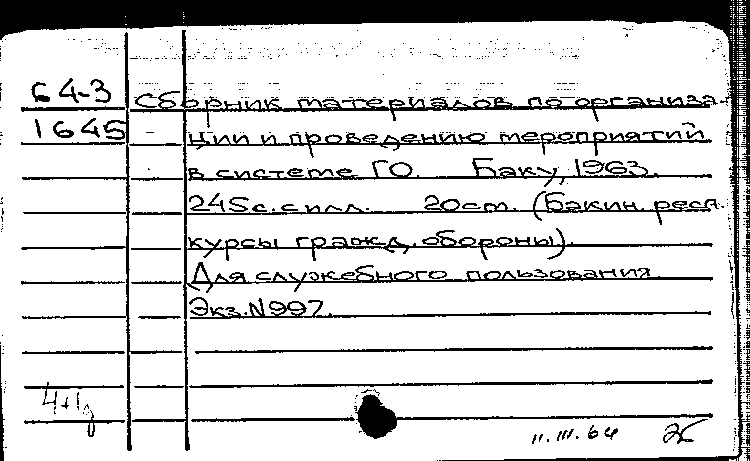 64-3 Сборник материалов по организа-
1645 ции и проведению мероприятий
в системе ГО. Баку, 1963.
245с.с илл. 20см. (Бакин. респ.
курсы гражд. обороны).
Для служебного пользования
Экз.N997.
11.III.64